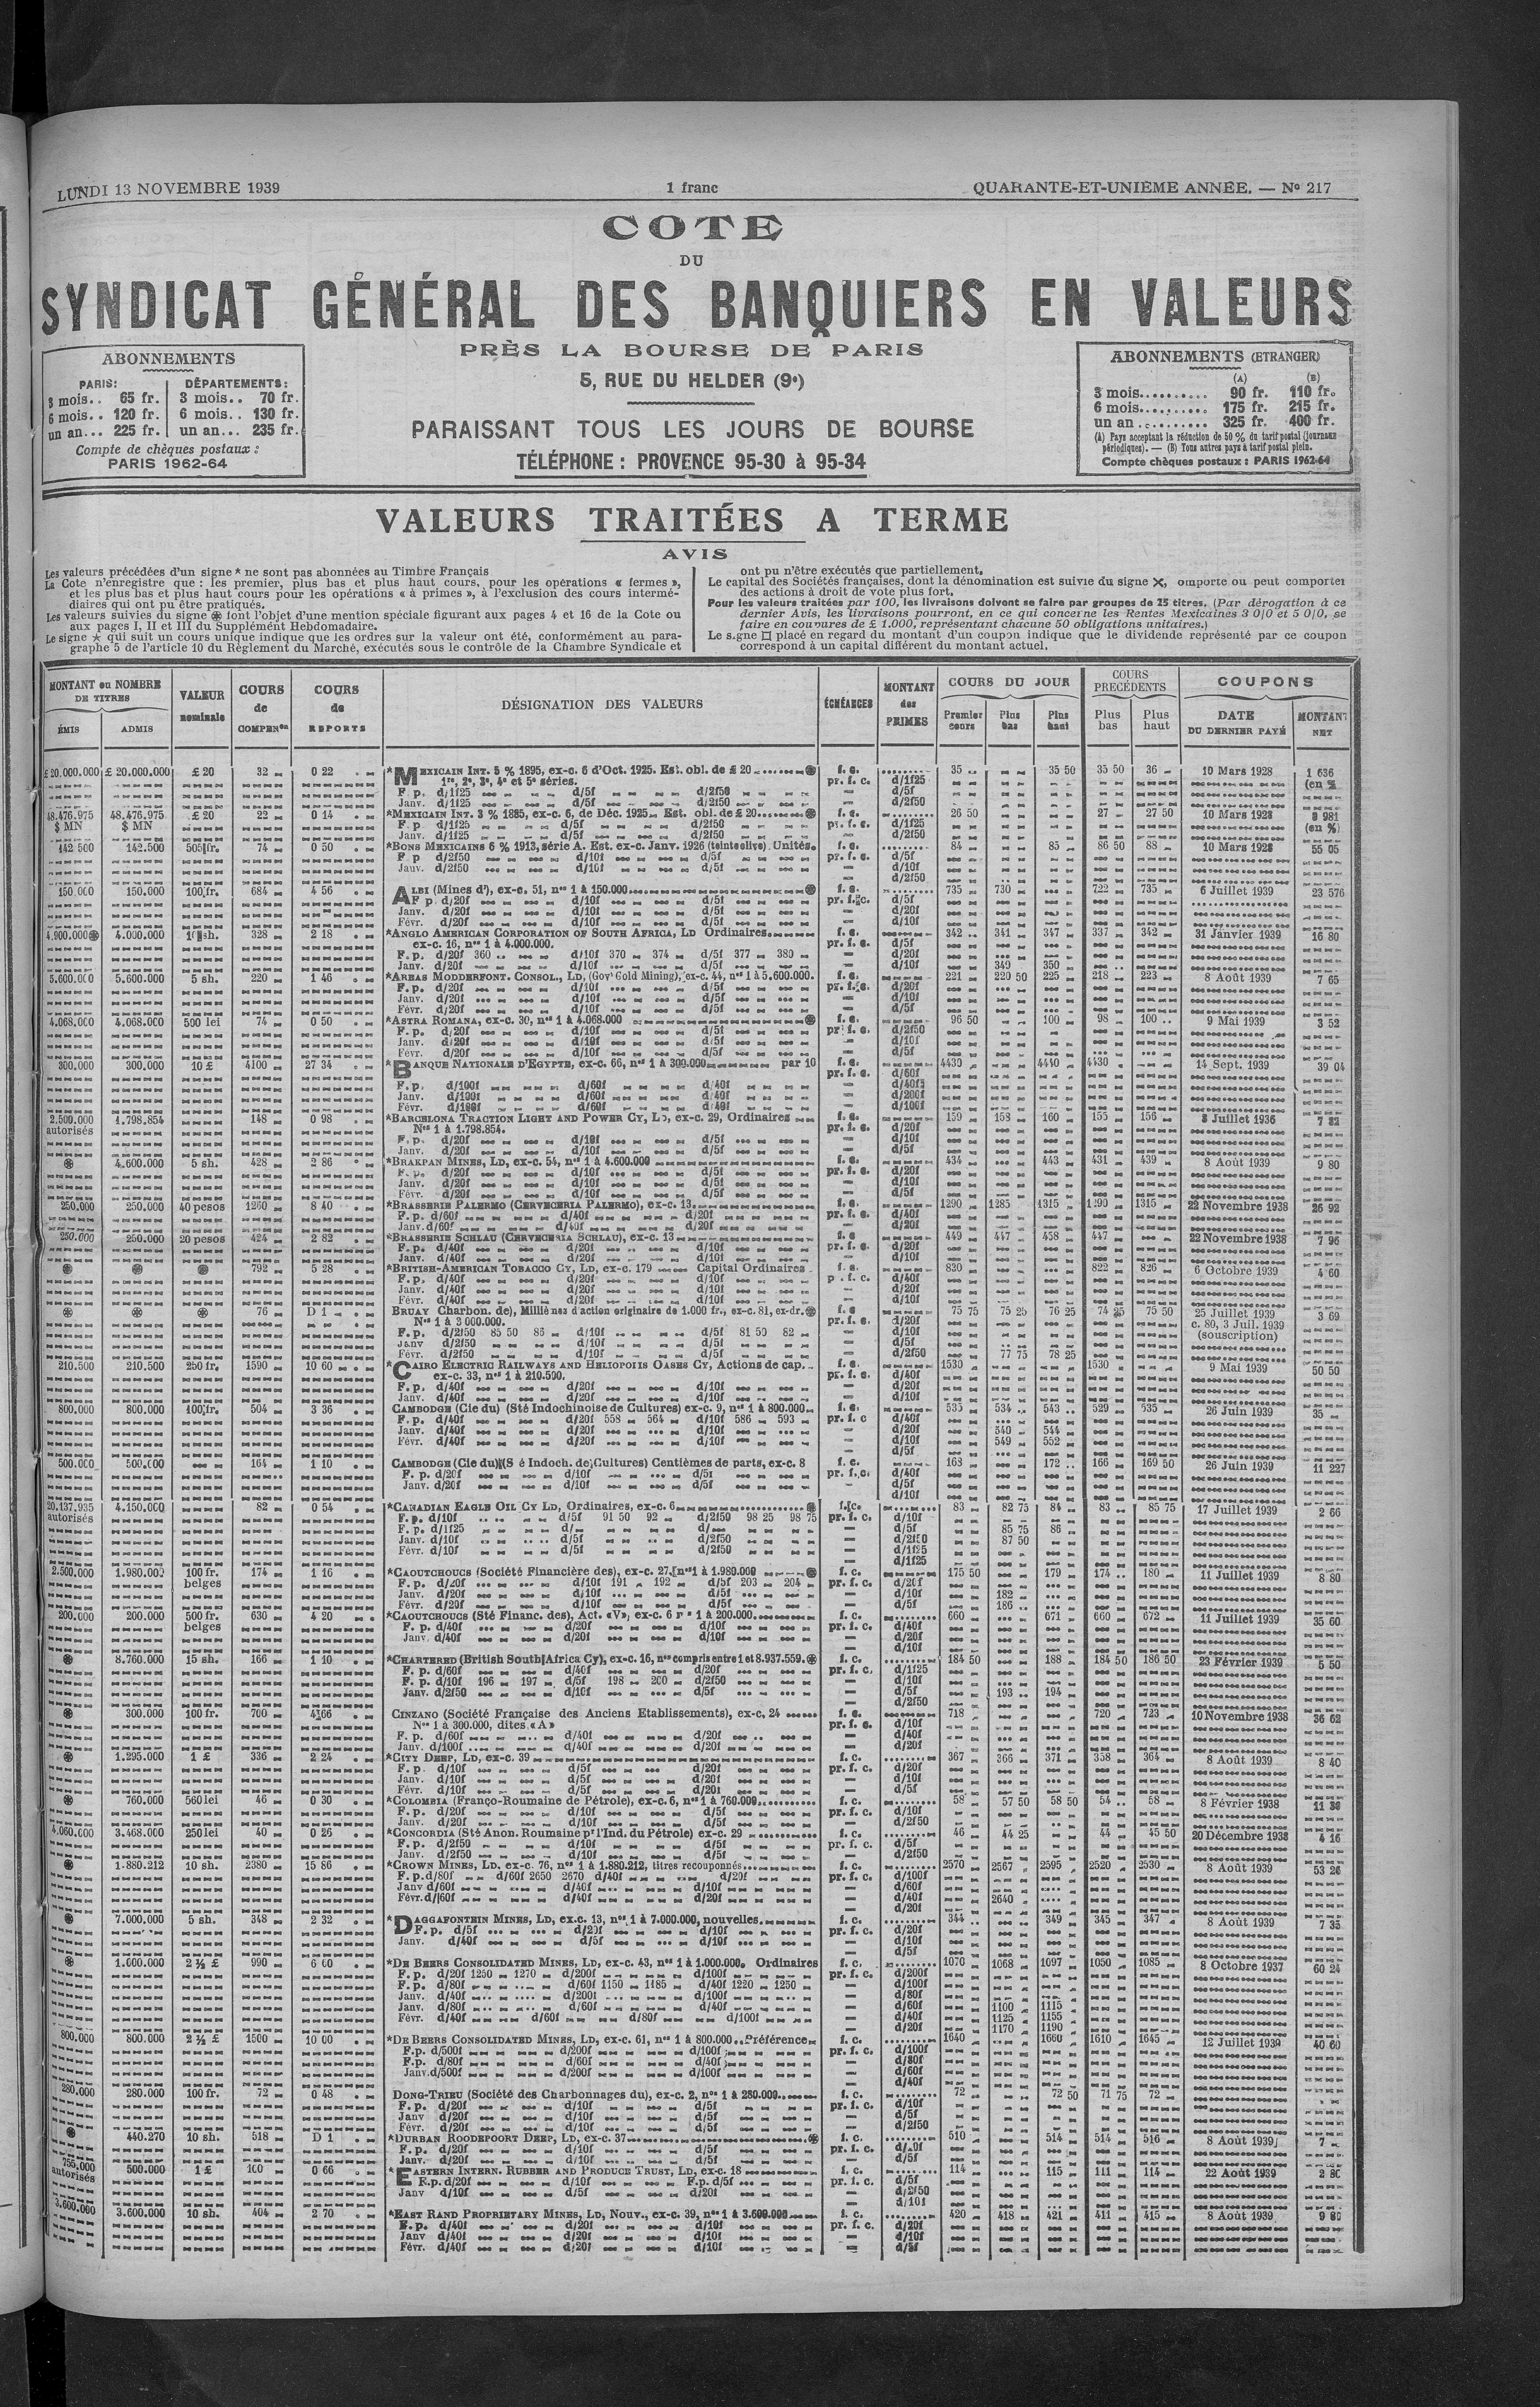 LUNDI 13 NOVEMBRE 1939
1 franc
QUARANTE-ET-UNIÈME ANNÉE. — Nº 217
COTE
DU
SYNDICAT GÉNÉRAL DES BANQUIERS EN VALEURS
PRÈS LA BOURSE DE PARIS
5, RUE DU HELDER (9e)
PARAISSANT TOUS LES JOURS DE BOURSE
TÉLÉPHONE : PROVENCE 95-30 à 95-34
ABONNEMENTS
PARIS: DÉPARTEMENTS:
3 mois.. 65 fr. 3 mois.. 70 fr.
6 mois.. 120 fr. 6 mois.. 130 fr.
un an... 225 fr. un an... 235 fr.
Compte de chèques postaux :
PARIS 1962-64
ABONNEMENTS (ETRANGER)
(A) (B)
3 mois.......... 90 fr. 110 fr.
6 mois.......... 175 fr. 215 fr.
un an .......... 325 fr. 400 fr.
(A) Pays acceptant la réduction de 50 % du tarif postal (journaux
périodiques). — (B) Tous autres pays à tarif postal plein.
Compte chèques postaux : PARIS 1962-64
VALEURS TRAITÉES A TERME
AVIS
Les valeurs précédées d'un signe * ne sont pas abonnées au Timbre Français
La Cote n'enregistre que : les premier, plus bas et plus haut cours, pour les opérations « fermes »,
et les plus bas et plus haut cours pour les opérations « à primes », à l'exclusion des cours intermé-
diaires qui ont pu être pratiqués.
Les valeurs suivies du signe ⊛ font l'objet d'une mention spéciale figurant aux pages 4 et 16 de la Cote ou
aux pages I, II et III du Supplément Hebdomadaire.
Le signe ★ qui suit un cours unique indique que les ordres sur la valeur ont été, conformément au para-
graphe 5 de l'article 10 du Règlement du Marché, exécutés sous le contrôle de la Chambre Syndicale et
ont pu n'être exécutés que partiellement.
Le capital des Sociétés françaises, dont la dénomination est suivie du signe ✕, omporte ou peut comporter
des actions à droit de vote plus fort.
Pour les valeurs traitées par 100, les livraisons doivent se faire par groupes de 25 titres. (Par dérogation à ce
dernier Avis, les livraisons pourront, en ce qui concerne les Rentes Mexicaines 3 0/0 et 5 0/0, se
faire en coupures de £ 1.000, représentant chacune 50 obligations unitaires.)
Le s.gne □ placé en regard du montant d'un coupon indique que le dividende représenté par ce coupon
correspond à un capital différent du montant actuel.
MONTANT ou NOMBRE DE TITRES
ÉMIS ADMIS
VALEUR nominale
COURS de COMPENon
COURS de REPORTS
DÉSIGNATION DES VALEURS
ÉCHÉANCES
MONTANT des PRIMES
COURS DU JOUR
Premier cours Plus bas Plus haut
COURS PRÉCÉDENTS
Plus bas Plus haut
COUPONS
DATE DU DERNIER PAYÉ
MONTANT NET
£ 20.000.000 £ 20.000.000 £ 20 32 0 22 *MEXICAIN INT. 5 % 1895, ex-c. 6 d'Oct. 1925. Est. obl. de £ 20 ⊛ f. c. 35 35 50 35 50 36 10 Mars 1928 1 636
1re, 2e, 3e, 4e et 5e séries. pr. f. c. d/1f25 (en %)
F. p. d/1f25 d/5f d/2f50 d/5f
Janv. d/1f25 d/5f d/2f50 d/2f50
48.476.975 48.476.975 £ 20 22 0 14 *MEXICAIN INT. 3 % 1885, ex-c. 6, de Déc. 1925. Est. obl. de £ 20 ⊛ f. c. 26 50 27 27 50 10 Mars 1928 981
$ MN $ MN F. p. d/1f25 d/5f d/2f50 pr. f. c. d/1f25 (en %)
Janv. d/1f25 d/5f d/2f50 d/2f50
142 500 142.500 505 fr. 74 0 50 *BONS MEXICAINS 6 % 1913, série A. Est. ex-c. Janv. 1926 (teinte olive) Unités. f. c. 84 85 86 50 88 10 Mars 1928 55 05
F. p. d/2f50 d/10f d/5f pr. f. c. d/5f
Janv. d/2f50 d/10f d/5f d/10f
d/2f50
150.000 150.000 100 fr. 684 4 56 ALBI (Mines d'), ex-c. 51, nos 1 à 150.000 ⊛ f. c. 735 730 722 735 6 Juillet 1939 23 576
F. p. d/20f d/10f d/5f pr. f. c. d/5f
Janv. d/20f d/10f d/5f d/20f
Févr. d/20f d/10f d/5f d/10f
4.900.000 ⊛ 4.000.000 10 sh. 328 2 18 *ANGLO AMERICAN CORPORATION OF SOUTH AFRICA, LD Ordinaires f. c. 342 341 347 337 342 31 Janvier 1939 16 80
ex-c. 16, nos 1 à 4.000.000. pr. f. c. d/5f
F. p. d/20f 360 d/10f 370 374 d/5f 377 380 d/20f
Janv. d/20f d/10f d/5f d/10f 349 350
5.600.000 5.600.000 5 sh. 220 1 46 *AREAS MODDERFONT. CONSOL., LD, (Govt Gold Mining), ex-c. 44, nos 1 à 5.600.000. f. c. 221 220 50 225 218 223 8 Août 1939 7 65
F. p. d/20f d/10f d/5f pr. f. c. d/20f
Janv. d/20f d/10f d/5f d/10f
Févr. d/20f d/10f d/5f d/5f
4.068.000 4.068.000 500 lei 74 0 50 *ASTRA ROMANA, ex-c. 30, nos 1 à 4.068.000 ⊛ f. c. 96 50 100 98 100 9 Mai 1939 3 52
F. p. d/20f d/10f d/5f pr. f. c. d/2f50
Janv. d/20f d/10f d/5f d/10f
Févr. d/20f d/10f d/5f d/5f
300.000 300.000 10 £ 4100 27 34 *BANQUE NATIONALE D'EGYPTE, ex-c. 66, nos 1 à 300.000 par 10 f. c. 4430 4440 4430 14 Sept. 1939 39 04
pr. f. c. d/60f
F. p. d/100f d/60f d/40f d/40f
Janv. d/100f d/60f d/40f d/200f
Févr. d/100f d/60f d/40f d/100f
2.500.000 1.798.854 148 0 98 *BARCELONA TRACTION LIGHT AND POWER CY, LD, ex-c. 29, Ordinaires f. c. 159 158 160 155 156 8 Juillet 1936 7 82
autorisés Nos 1 à 1.798.854. pr. f. c. d/20f
F. p. d/20f d/10f d/5f d/10f
Janv. d/20f d/10f d/5f d/5f
⊛ 4.600.000 5 sh. 428 2 86 *BRAKPAN MINES, LD, ex-c. 54, nos 1 à 4.600.000 f. c. 434 443 431 439 8 Août 1939 9 80
F. p. d/20f d/10f d/5f pr. f. c. d/20f
Janv. d/20f d/10f d/5f d/10f
Févr. d/20f d/10f d/5f d/5f
250.000 250.000 40 pesos 1260 8 40 *BRASSERIE PALERMO (CERVECERIA PALERMO), ex-c. 13 f. c. 1290 1285 1315 1290 1315 22 Novembre 1938 26 92
F. p. d/60f d/40f d/20f pr. f. c. d/40f
Janv. d/60f d/40f d/20f d/20f
250.000 250.000 20 pesos 424 2 82 *BRASSERIE SCHLAU (CERVECERIA SCHLAU), ex-c. 13 f. c. 449 447 458 447 22 Novembre 1938 7 96
F. p. d/40f d/20f d/10f pr. f. c. d/20f
Janv. d/40f d/20f d/10f d/10f
⊛ ⊛ ⊛ 792 5 28 *BRITISH-AMERICAN TOBACCO CY, LD, ex-c. 179 Capital Ordinaires f. c. 830 822 826 6 Octobre 1939 4 60
F. p. d/40f d/20f d/10f p . f. c. d/40f
Janv. d/40f d/20f d/10f d/20f
Févr. d/40f d/20f d/10f d/10f
⊛ ⊛ ⊛ 76 D 1 BRUAY Charbon. de), Millièmes d'action originaire de 1.000 fr., ex-c. 81, ex-dr. ⊛ f. c. 75 75 75 25 76 25 74 25 75 50 25 Juillet 1939 3 69
Nos 1 à 3 000.000. pr. f. c. d/20f c. 80, 3 Juil. 1939
F. p. d/2f50 85 50 86 d/10f d/5f 81 50 82 d/10f (souscription)
Janv d/2f50 d/10f d/5f d/5f
Févr. d/2f50 d/10f d/5f d/2f50 77 75 78 25
210.500 210.500 250 fr. 1590 10 60 *CAIRO ELECTRIC RAILWAYS AND HELIOPOLIS OASES CY, Actions de cap. f. c. 1530 1530 9 Mai 1939 50 50
ex-c. 33, nos 1 à 210.500. pr. f. c. d/40f
F. p. d/40f d/20f d/10f d/20f
Janv. d/40f d/20f d/10f d/10f
800.000 800.000 100 fr. 504 3 36 CAMBODGE (Cie du) (Sté Indochinoise de Cultures) ex-c. 9, nos 1 à 800.000 f. c. 535 534 543 529 535 26 Juin 1939 35
F. p. d/40f d/20f 558 564 d/10f 586 593 pr. f. c d/40f
Janv. d/40f d/20f d/10f d/20f 540 544
Févr. d/40f d/20f d/10f d/10f 549 552
d/5f
500.000 500.000 164 1 10 CAMBODGE (Cie du) (S é Indoch. de Cultures) Centièmes de parts, ex-c. 8 f. c. 168 172 166 169 50 26 Juin 1939 11 227
F. p. d/20f d/10f d/5f pr. f. c. d/40f
Janv. d/20f d/10f d/5f d/5f
d/10f
20.137.935 4.150.000 82 0 54 *CANADIAN EAGLE OIL CY LD, Ordinaires, ex-c. 6 ⊛ f. c. 83 82 75 84 83 85 75 17 Juillet 1939 2 66
autorisés F. p. d/10f d/5f 91 50 92 d/2f50 98 25 98 75 pr. f. c. d/10f
F. p. d/1f25 d/ d/ d/5f 85 75 86
Janv. d/10f d/5f d/2f50 d/2f50 87 50
Févr. d/10f d/5f d/2f50 d/1f25
d/1f25
2.500.000 1.980.000 100 fr. 174 1 16 *CAOUTCHOUCS (Société Financière des), ex-c. 27, nos 1 à 1.980.000 ⊛ f. c. 175 50 179 174 180 11 Juillet 1939 8 80
belges F. p. d/20f d/10f 191 192 d/5f 203 204 pr. f. c. d/20f
Janv. d/20f d/10f d/5f d/10f 182
Févr. d/20f d/10f d/5f d/5f 186
200.000 200.000 500 fr. 630 4 20 *CAOUTCHOUCS (Sté Financ. des), Act. «V», ex-c. 6 nos 1 à 200.000 f. c. 660 671 660 672 11 Juillet 1939 35 60
belges F. p. d/40f d/20f d/10f pr. f. c. d/40f
Janv. d/40f d/20f d/10f d/20f
d/10f
⊛ 8.760.000 15 sh. 166 1 10 *CHARTERED (British South Africa Cy), ex-c. 16, nos compris entre 1 et 8.937.559. ⊛ f. c. 184 50 188 184 50 186 50 23 Février 1939 5 50
F. p. d/60f d/40f d/20f pr. f. c. d/1f25
F. p. d/10f 196 197 d/5f 198 200 d/2f50 d/10f
Janv. d/2f50 d/10f d/5f d/5f 193 194
d/2f50
⊛ 300.000 100 fr. 700 4 66 CINZANO (Société Française des Anciens Etablissements), ex-c. 24 f. c. 718 720 723 10 Novembre 1938 36 62
Nos 1 à 300.000, dites «A» pr. f. c. d/10f
F. p. d/60f d/40f d/20f d/40f
Janv. d/100f d/40f d/20f d/20f
⊛ 1.295.000 1 £ 336 2 24 *CITY DEEP, LD, ex-c. 39 f. c. 367 366 371 358 364 8 Août 1939 8 40
F. p. d/10f d/5f d/20f pr. f. c. d/20f
Janv. d/10f d/5f d/20f d/10f
Févr. d/10f d/5f d/20f d/5f
⊛ 760.000 560 lei 46 0 30 *COLOMBIA (Franço-Roumaine de Pétrole), ex-c. 6, nos 1 à 760.000 f. c. 58 57 50 58 50 54 58 8 Février 1938 11 38
F. p. d/20f d/10f d/5f pr. f. c. d/10f
Janv. d/20f d/10f d/5f d/2f50
4.060.000 3.468.000 250 lei 40 0 26 *CONCORDIA (Sté Anon. Roumaine pr l'Ind. du Pétrole) ex-c. 29 f. c. 46 44 25 44 45 50 20 Décembre 1938 4 16
F. p. d/2f50 d/10f d/5f pr. f. c. d/5f
Janv. d/2f50 d/10f d/5f d/2f50
⊛ 1.880.212 10 sh. 2380 15 86 *CROWN MINES, LD. ex-c. 76, nos 1 à 1.880.212, titres recouponnés f. c. 2570 2567 2595 2520 2530 8 Août 1939 53 26
F. p. d/80f d/60f 2650 2670 d/40f d/20f pr. f. c. d/100f
Janv d/60f d/40f d/10f d/60f
Févr. d/60f d/40f d/20f d/40f 2640
d/20f
⊛ 7.000.000 5 sh. 348 2 32 *DAGGAFONTEIN MINES, LD, ex.c. 13, nos 1 à 7.000.000, nouvelles f. c. 344 349 345 347 8 Août 1939 7 35
F. p. d/5f d/20f d/10f pr. f. c. d/20f
Janv. d/40f d/5f d/10f d/10f
d/5f
⊛ 1.000.000 2 ½ £ 990 6 60 *DE BEERS CONSOLIDATED MINES, LD, ex-c. 43, nos 1 à 1.000.000. Ordinaires f. c. 1070 1068 1097 1050 1085 8 Octobre 1937 60 24
F. p. d/20f 1250 1270 d/200f d/100f pr. f. c. d/200f
F. p. d/80f d/60f 1150 1185 d/40f 1220 1250 d/100f
Janv. d/40f d/200f d/100f d/80f
Janv. d/80f d/60f d/40f d/60f 1100 1115
Févr. d/40f d/60f d/80f d/100f d/40f 1125 1155
d/20f 1170 1190
800.000 800.000 2 ½ £ 1500 10 00 *DE BEERS CONSOLIDATED MINES, LD, ex-c. 61, nos 1 à 800.000 Préférence f. c. 1640 1660 1610 1645 12 Juillet 1939 40 60
F. p. d/500f d/200f d/100f pr. f. c. d/100f
F.p. d/80f d/60f d/40f d/80f
Janv. d/500f d/200f d/100f d/60f
d/40f
280.000 280.000 100 fr. 72 0 48 DONG-TRIEU (Société des Charbonnages du), ex-c. 2, nos 1 à 280.000 f. c. 72 72 50 71 75 72
F. p. d/20f d/10f d/5f pr. f. c. d/10f
Janv d/20f d/10f d/5f d/5f
Févr. d/20f d/10f d/5f d/2f50
⊛ 440.270 10 sh. 518 D 1 *DURBAN ROODEPOORT DEEP, LD, ex-c. 37 ⊛ f. c. 510 514 514 516 8 Août 1939 7
F. p. d/20f d/10f d/5f pr. f. c.
Janv. d/20f d/10f d/5f d/5f
755.000 500.000 1 £ 100 0 66 *EASTERN INTERN. RUBBER AND PRODUCE TRUST, LD, ex-c. 18 f. c. 114 115 111 114 22 Août 1939 2 80
autorisés F.p. d/20f d/10f F.p. d/5f pr. f. c. d/5f
Janv d/10f d/5f d/20f d/2f50
d/10f
3.600.000 3.600.000 10 sh. 404 2 70 *EAST RAND PROPRIETARY MINES, LD, Nouv., ex-c. 39, nos 1 à 3.600.000 f. c. 420 418 421 411 415 8 Août 1939 9 80
F. p. d/40f d/20f d/10f pr. f. c. d/20f
Janv d/40f d/20f d/10f d/10f
Févr. d/40f d/20f d/10f d/5f